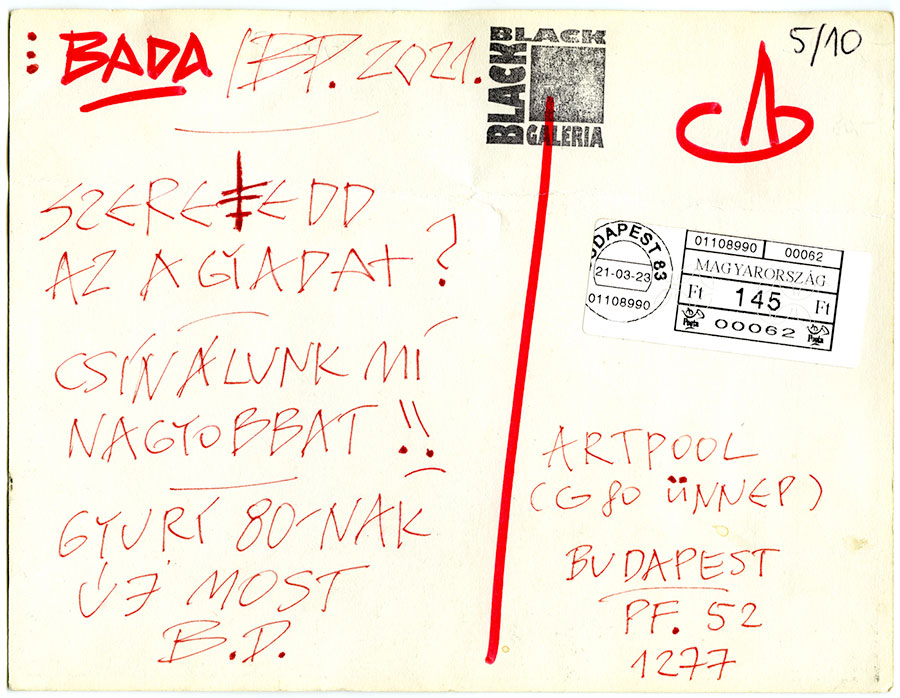 BADA / BP. 2021.
BLACK
BLACK
GALERIA
5/10
SZERETEDD
AZ AGYADAT?
CSÍNÁLUNK MÍ
NAGYOBBAT!!
GYURÍ 80-NAK
ÚJ MOST
B.D.
UDAPEST 83
21-03-23
01108990
01108990 00062
MAGYARORSZÁG
Ft 145 Ft
Posta 00062 Posta
ARTPOOL
(G80 ÜNNEP)
BUDAPEST
PF. 52
1277